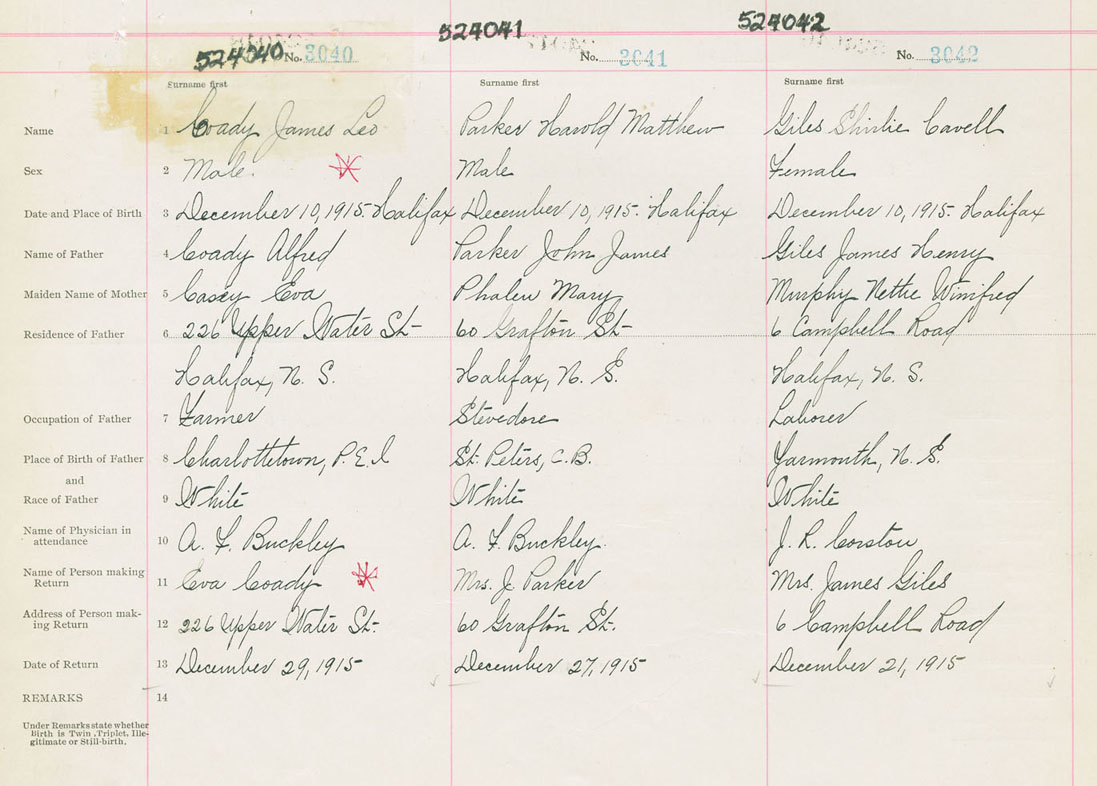 524040 No. 3040 524041 No. 3041 524042 No. 3042
Surname first Surname first Surname first
Name 1 Coady James Leo Parker Harold Matthew Giles Shirlie Cavell
Sex 2 Male. Male Female
Date and Place of Birth 3 December 10, 1915. Halifax December 10, 1915. Halifax December 10, 1915. Halifax
Name of Father 4 Coady Alfred Parker John James Giles James Henry
Maiden Name of Mother 5 Casey Eva Phalen Mary Murphy Nettie Winifred
Residence of Father 6 226 Upper Water St. 60 Grafton St. 6 Campbell Road
Halifax, N. S. Halifax, N. S. Halifax, N. S.
Occupation of Father 7 Farmer Stevedore Laborer
Place of Birth of Father 8 Charlottetown, P. E. I St. Peters, C. B. Yarmouth, N. S.
and
Race of Father 9 White White White
Name of Physician in
attendance 10 A. F. Buckley A. F. Buckley. J. R. Corston
Name of Person making
Return 11 Eva Coady Mrs. J. Parker Mrs. James Giles
Address of Person mak-
ing Return 12 226 Upper Water St. 60 Grafton St. 6 Campbell Road
Date of Return 13 December 29, 1915 December 27, 1915 December 21, 1915
REMARKS 14
Under Remarks state whether
Birth is Twin, Triplet, Ille-
gitimate or Still-birth.